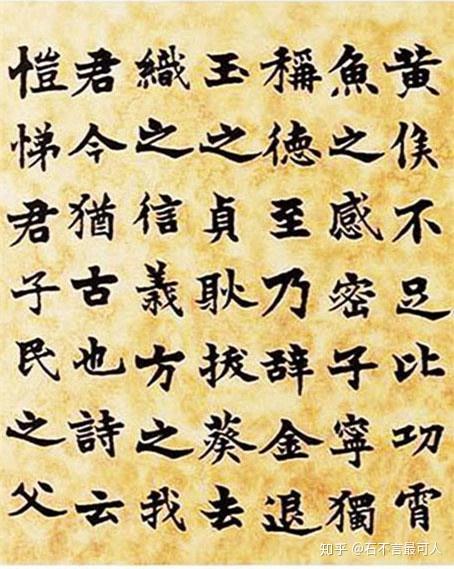 黄侯不足比功霄
魚之感密子寧獨
稱德至乃辞金退
玉之貞耿拔葵去
織之信義方之我
君今猶古也詩云
愷悌君子民之父
知乎 @石不言最可人